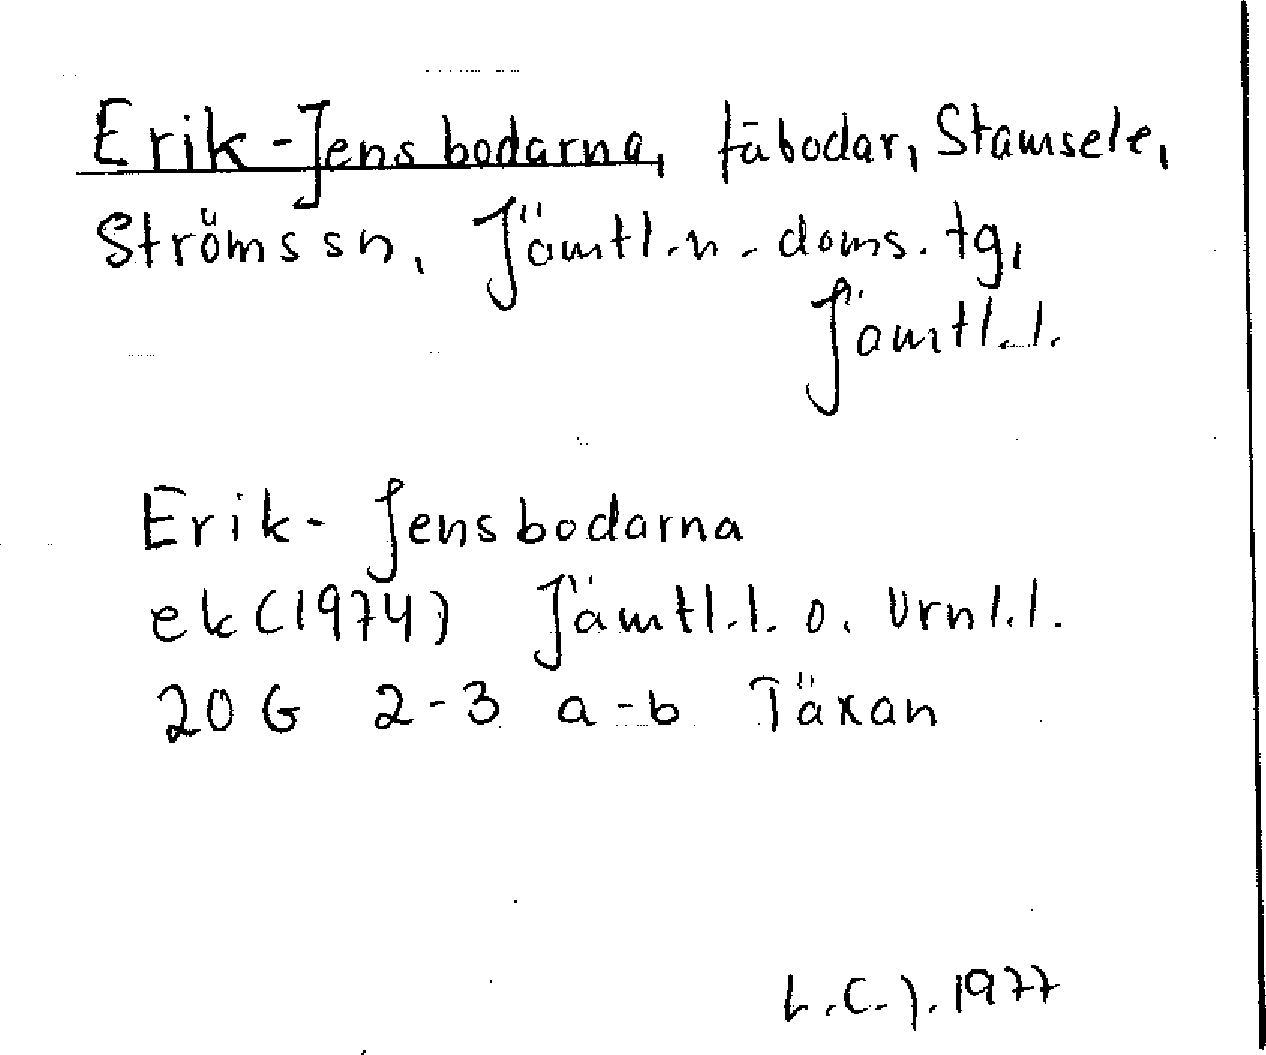 Erik-Jensbodarna, fäbodar, Stamsele,
Ströms sn, Jämtl.n.doms.tg,
Jämtl.l.
Erik-Jensbodarna
ek (1974) Jämtl.l. o. Vrml.l.
20 G 2-3 a-b Täxan
L.C.J. 1977